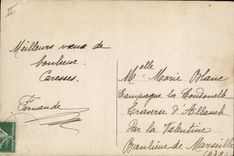 II
Meilleurs vœux de
bonheur.
Caresses.
Fernande
Melle Marie Blanc
Campagne la Coudonelle
Traverse d'Allauch
Par la Valentine
Banlieue de Marseille